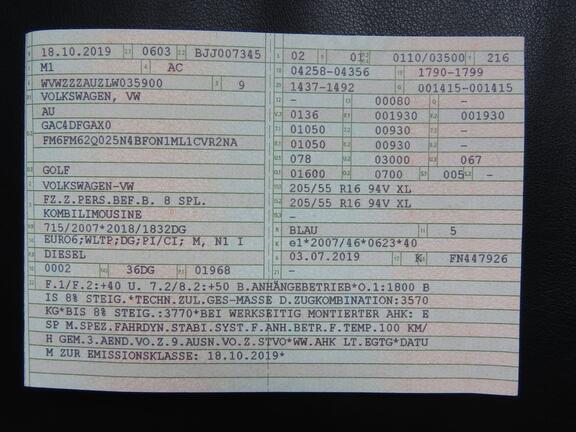 18.10.2019 0603 BJJ007345
M1 AC
WVWZZZAUZLW035900 9
VOLKSWAGEN, VW
AU
GAC4DFGAX0
FM6FM62Q025N4BFON1ML1CVR2NA
GOLF
VOLKSWAGEN-VW
FZ.Z.PERS.BEF.B. 8 SPL.
KOMBILIMOUSINE
715/2007*2018/1832DG
EURO6;WLTP;DG;PI/CI; M, N1 I
DIESEL
0002 36DG 01968
02 01 0110/03500 216
04258-04356 1790-1799
1437-1492 001415-001415
- 00080 -
0136 001930 001930
01050 00930 -
01050 00930 -
078 03000 067
01600 0700 005 -
205/55 R16 94V XL
205/55 R16 94V XL
-
BLAU 5
e1*2007/46*0623*40
03.07.2019 K FN447926
F.1/F.2:+40 U. 7.2/8.2:+50 B.ANHÄNGEBETRIEB*O.1:1800 B
IS 8% STEIG.*TECHN.ZUL.GES-MASSE D.ZUGKOMBINATION:3570
KG*BIS 8% STEIG.:3770*BEI WERKSEITIG MONTIERTER AHK: E
SP M.SPEZ.FAHRDYN.STABI.SYST.F.ANH.BETR.F.TEMP.100 KM/
H GEM.3.AEND.VO.Z.9.AUSN.VO.Z.STVO*WW.AHK LT.EGTG*DATU
M ZUR EMISSIONSKLASSE: 18.10.2019*